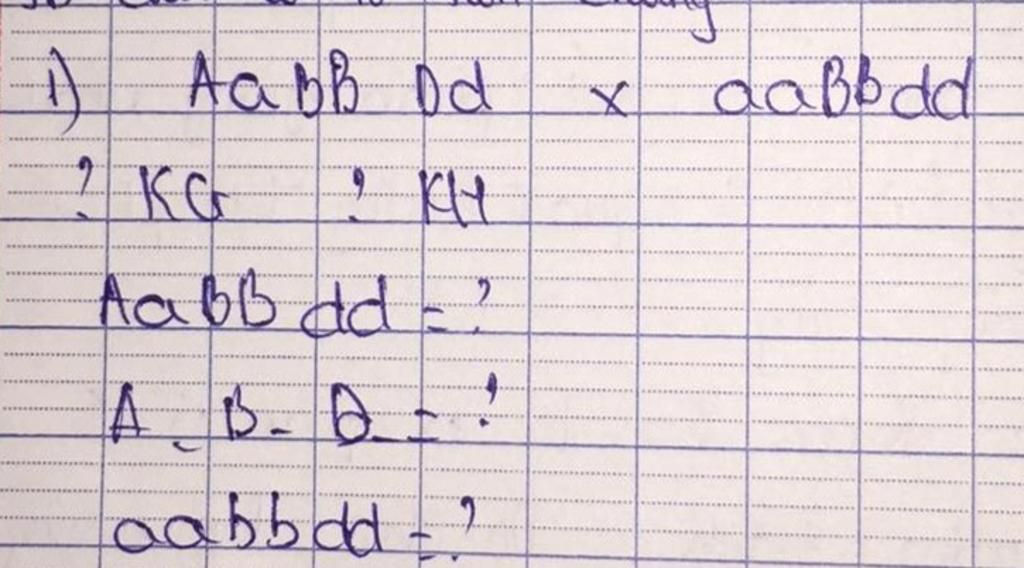 1) AaBBDd x aaBbdd
? KG ? KH
AaBBdd = ?
A_B_D_ = ?
aabbdd = ?